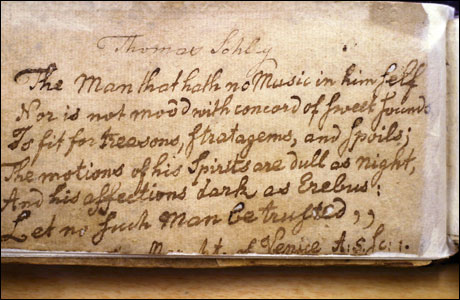 Thomas Schley
The Man that hath no Music in him self
Nor is not mov'd with concord of sweet sounds
Is fit for treasons, stratagems, and spoils;
The motions of his Spirits are dull as night,
And his affections dark as Erebus:
Let no such Man be trusted,,
of Venice A: 5. Sc: 1.